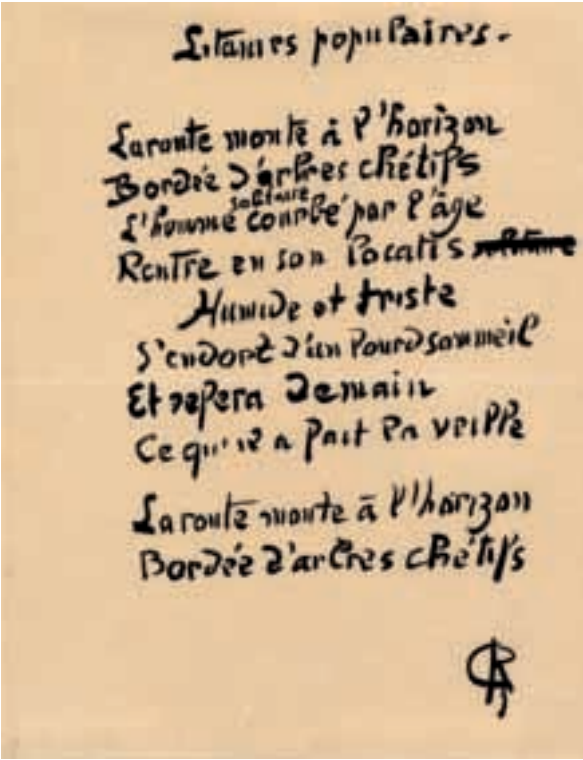 Litanies populaires.
La route monte à l'horizon
Bordée d'arbres chétifs
solitaire
L'homme courbé par l'âge
Rentre en son locatis solitaire
Humide et triste
S'endort d'un lourd sommeil
Et refera demain
Ce qu'il a fait la veille
La route monte à l'horizon
Bordée d'arbres chétifs